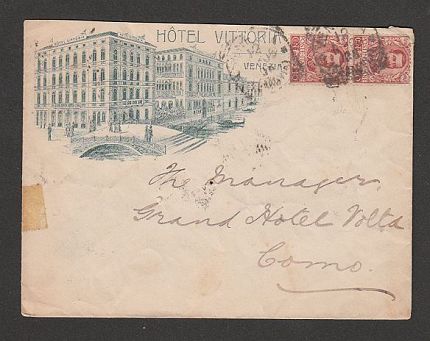 HÔTEL VITTORIA
VENEZIA
The Manager
Grand Hotel Volta
Como.